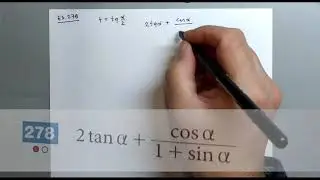 Es. 278 t = tg α/2 2 tgα + cosα
278 2 tan α + cos α / 1 + sin α